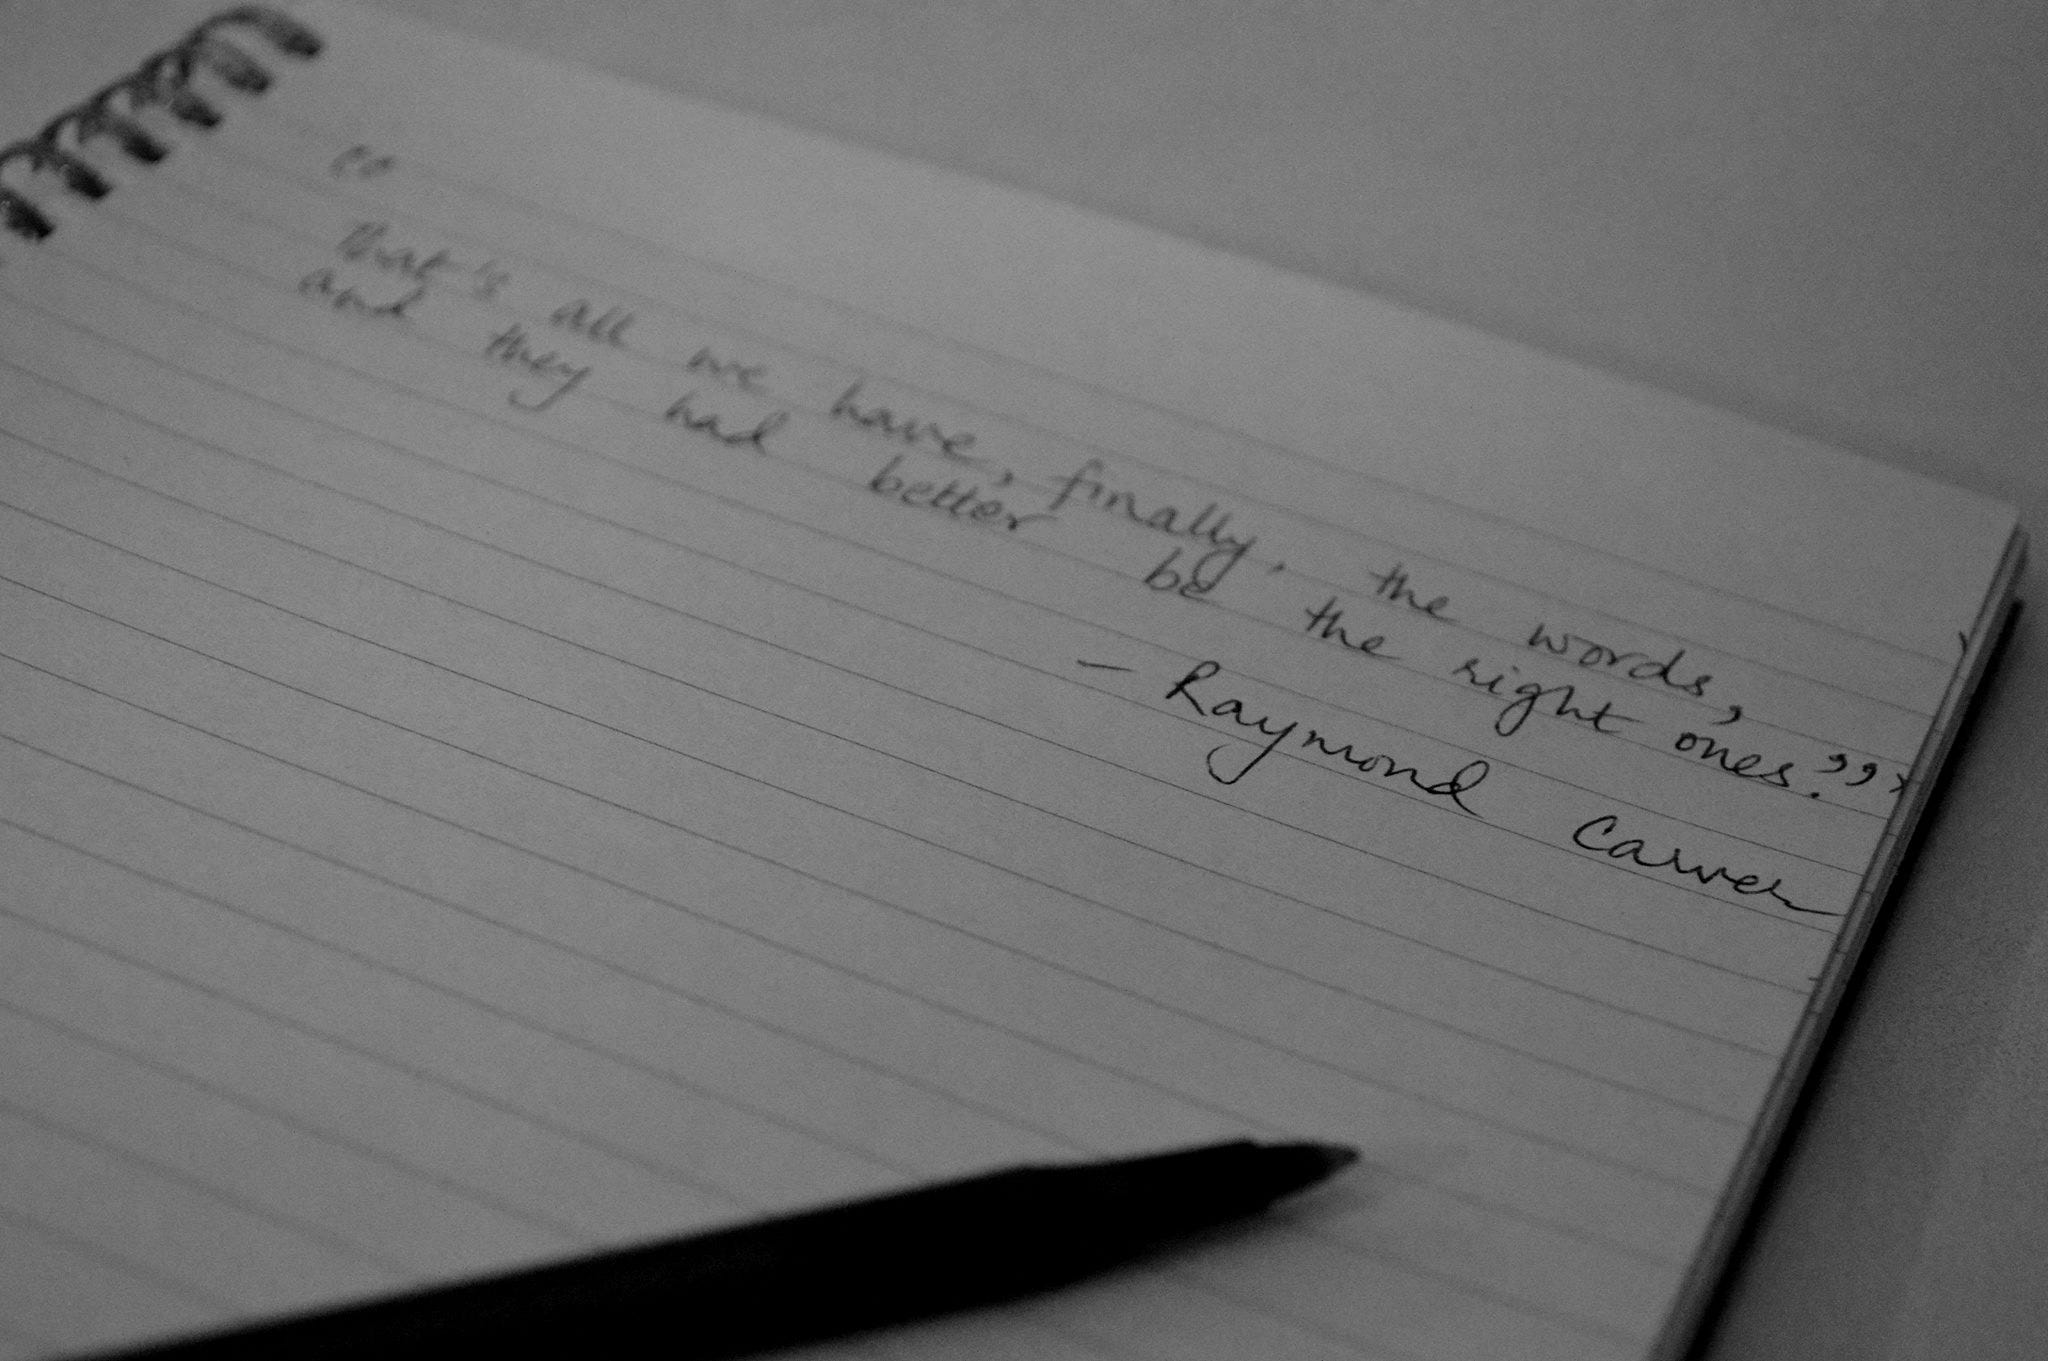 “
That's all we have, finally, the words,
and they had better be the right ones.”
— Raymond Carver